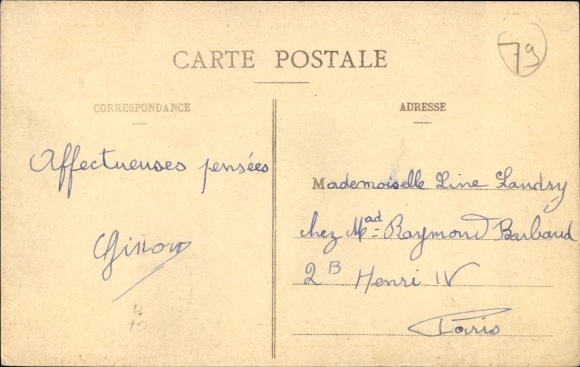 CARTE POSTALE
79
CORRESPONDANCE
Affectueuses pensées
ADRESSE
Mademoiselle Line Landry
chez Mad Raymond Barbaud
2 B Henri IV
Paris